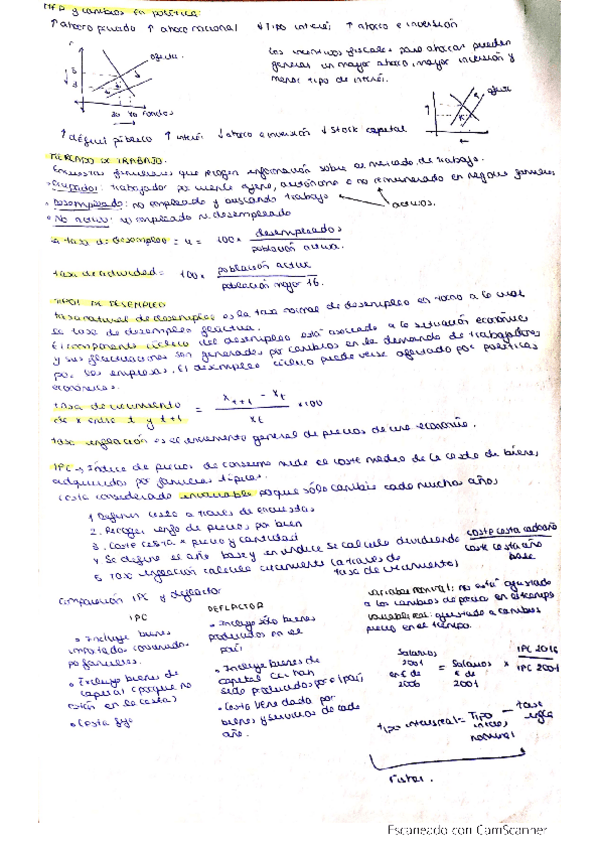 MFP y cambios en política:
↑ ahorro privado ↑ ahorro nacional ↓ Tipo interés ↑ ahorro e inversión
Los incentivos fiscales para ahorrar pueden
generar un mayor ahorro, mayor inversión y
menor tipo de interés.
r
oferta
30 40 Fondos
oferta
↑ déficit público ↑ interés ↓ ahorro e inversión ↓ Stock capital
MERCADO DE TRABAJO.
Encuestas familiares que recogen información sobre el mercado de trabajo.
• Ocupados: trabajador por cuenta ajena, autónomo o no remunerado en negocios familiares
• Desempleado: no empleado y buscando trabajo
activos.
• No activo: ni empleado ni desempleado
la tasa de desempleo = u = 100 × desempleados
población activa.
tasa de actividad = 100 × población activa
población mayor 16.
TIPOS DE DESEMPLEO
tasa natural de desempleo es la tasa normal de desempleo en torno a la cual
la tasa de desempleo fluctúa.
El componente cíclico del desempleo está asociado a la situación económica
y sus fluctuaciones son generadas por cambios en la demanda de trabajadores
por las empresas. El desempleo cíclico puede verse afectado por políticas
económicas.
tasa de crecimiento
de x entre t y t+1 = Xt+1 - Xt
Xt
×100
tasa inflación es el incremento general de precios de una economía.
IPC → Índice de precios de consumo mide el coste medio de la cesta de bienes
adquiridos por familias típicas.
Cesta considerada invariable porque sólo cambia cada muchos años
1 Definir cesta a traves de encuestas
2. Recoger info de precios por bien
3. Coste cesta × precio y cantidad
4 Se define el año base y en índice se calcula dividiendo coste cesta cada año
coste cesta año base
5 Tasa inflación calculo crecimiento (a traves de
tasa de crecimiento)
Comparación IPC y deflactor
IPC
• Incluye bienes
importados consumidos
por familias.
• Excluye bienes de
capital (porque no
están en la cesta)
• Cesta fija
DEFLACTOR
• Incluye sólo bienes
producidos en el
país
• Incluye bienes de
capital si han
sido producidos por el país
• Cesta viene dada por
bienes y servicios de cada
año.
variable nominal: no está ajustada
a los cambios de precio en el tiempo
variable real: ajustada a cambios
precio en el tiempo.
Salarios
2001
en € de
2006
= Salarios
€ de
2001
× IPC 2016
IPC 2001
tipo interés real = Tipo
interés
nominal
- tasa
infla
Fisher.
Escaneado con CamScanner